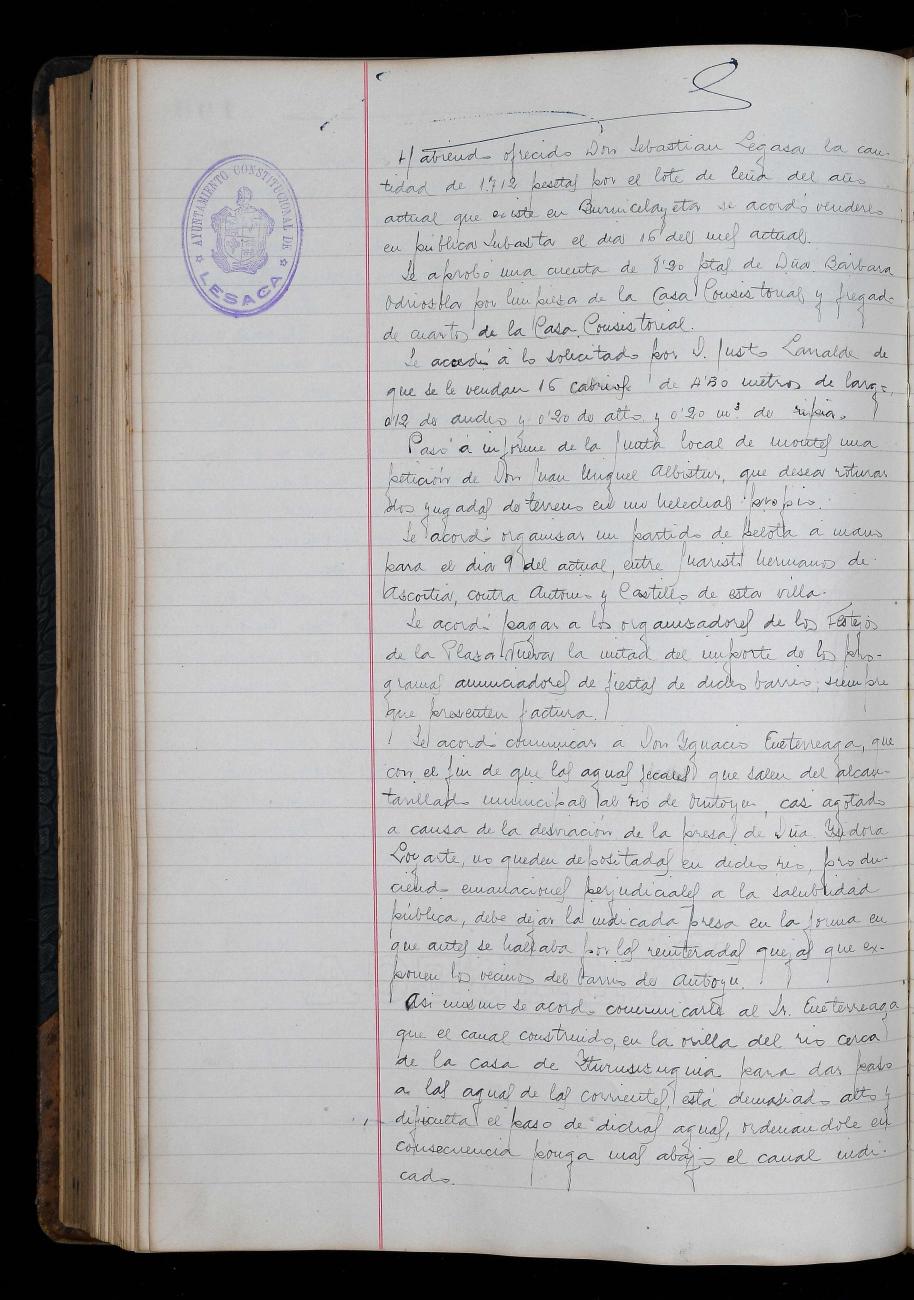 AYUNTAMIENTO CONSTITUCIONAL DE
LESACA
Habiendo ofrecido Don Sebastian Legasa la can-
tidad de 1.712 pesetas por el lote de leña del año
actual que existe en Burnicelayeta se acordó venderlo
en pública subasta el dia 16 del mes actual.
Se aprobó una cuenta de 8'20 ptas de Dña Bárbara
Odriozola por limpiesa de la Casa Consistorial y fregado
de cuartos de la Casa Consistorial.
Se accedió á lo solicitado por D. Justo Larralde de
que se le vendan 16 cabrios de 4'30 metros de largo,
0'12 de ancho y 0'20 de alto y 0'20 m³ de ripia.
Pasó á informe de la Junta local de montes una
petición de Don Juan Miguel Albistur, que desea roturar
dos yugadas de terreno en un helechal propio.
Se acordó organisar un partido de pelota á mano
para el dia 9 del actual, entre Juaristi hermanos de
Ascoitia, contra Antonio y Castillo de esta villa.
Se acordó pagar a los organisadores de los Festejos
de la Plasa Nueva la mitad del importe de los pro-
gramas anunciadores de fiestas de dicho barrio, siempre
que presenten factura.
Se acordó comunicar a Don Ygnacio Eneterreaga, que
con el fin de que las aguas fecales que salen del alcan-
tarillado municipal al rio de casi agotado
a causa de la desviación de la presa de Dña Ysidora
Loyarte, no queden depositadas en dicho rio, produ-
ciendo emanaciones perjudiciales a la salubridad
pública, debe dejar la indicada presa en la forma en
que antes se hallaba por las reiteradas quejas que ex-
ponen los vecinos del barrio de
Asi mismo se acordó comunicarle al Sr. Eneterreaga
que el canal construido, en la orilla del rio cerca
de la casa de para dar paso
a las aguas de las corrientes, esta demasiado alto y
dificulta el paso de dichas aguas, ordenandole en
consecuencia ponga mas abajo el canal indi-
cado.